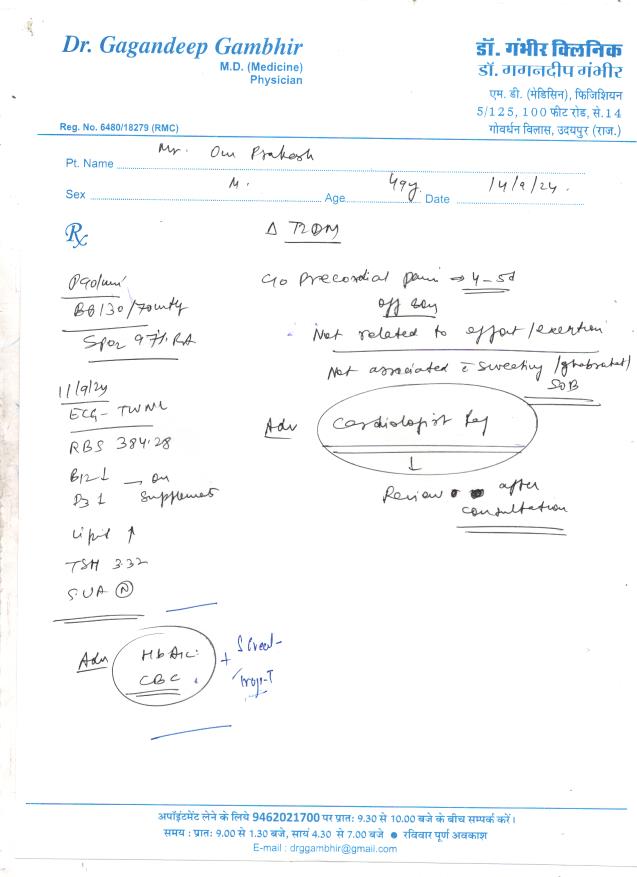 Dr. Gagandeep Gambhir
M.D. (Medicine)
Physician
Reg. No. 6480/18279 (RMC)
डॉ. गंभीर क्लिनिक
डॉ. गगनदीप गंभीर
एम. डी. (मेडिसिन), फिजिशियन
5/125, 100 फीट रोड, से.14
गोवर्धन विलास, उदयपुर (राज.)
Pt. Name Mr. Om Prakash
Sex M. Age 49y Date 14/9/24.
Rx
Δ T2DM
P 90/min
BP 130/70 mmHg
SpO2 97% RA
C/o Precordial pain → 4-5d
off & on
Not related to effort/exertion
Not associated c̄ sweating/ghabrahat/
SOB
Adv Cardiologist
↓
Review after
consultation
11/9/24
ECG - TWNL
RBS 384.28
B12 ↓ → on
D3 ↓ Supplement
Lipid ↑
TSH 3.32
S.UA (N)
Adv HbA1c
CBC
+ S Creat-
Trop-T
अपॉइंटमेंट लेने के लिये 9462021700 पर प्रातः 9.30 से 10.00 बजे के बीच सम्पर्क करें।
समय : प्रातः 9.00 से 1.30 बजे, सायं 4.30 से 7.00 बजे ● रविवार पूर्ण अवकाश
E-mail : drggambhir@gmail.com